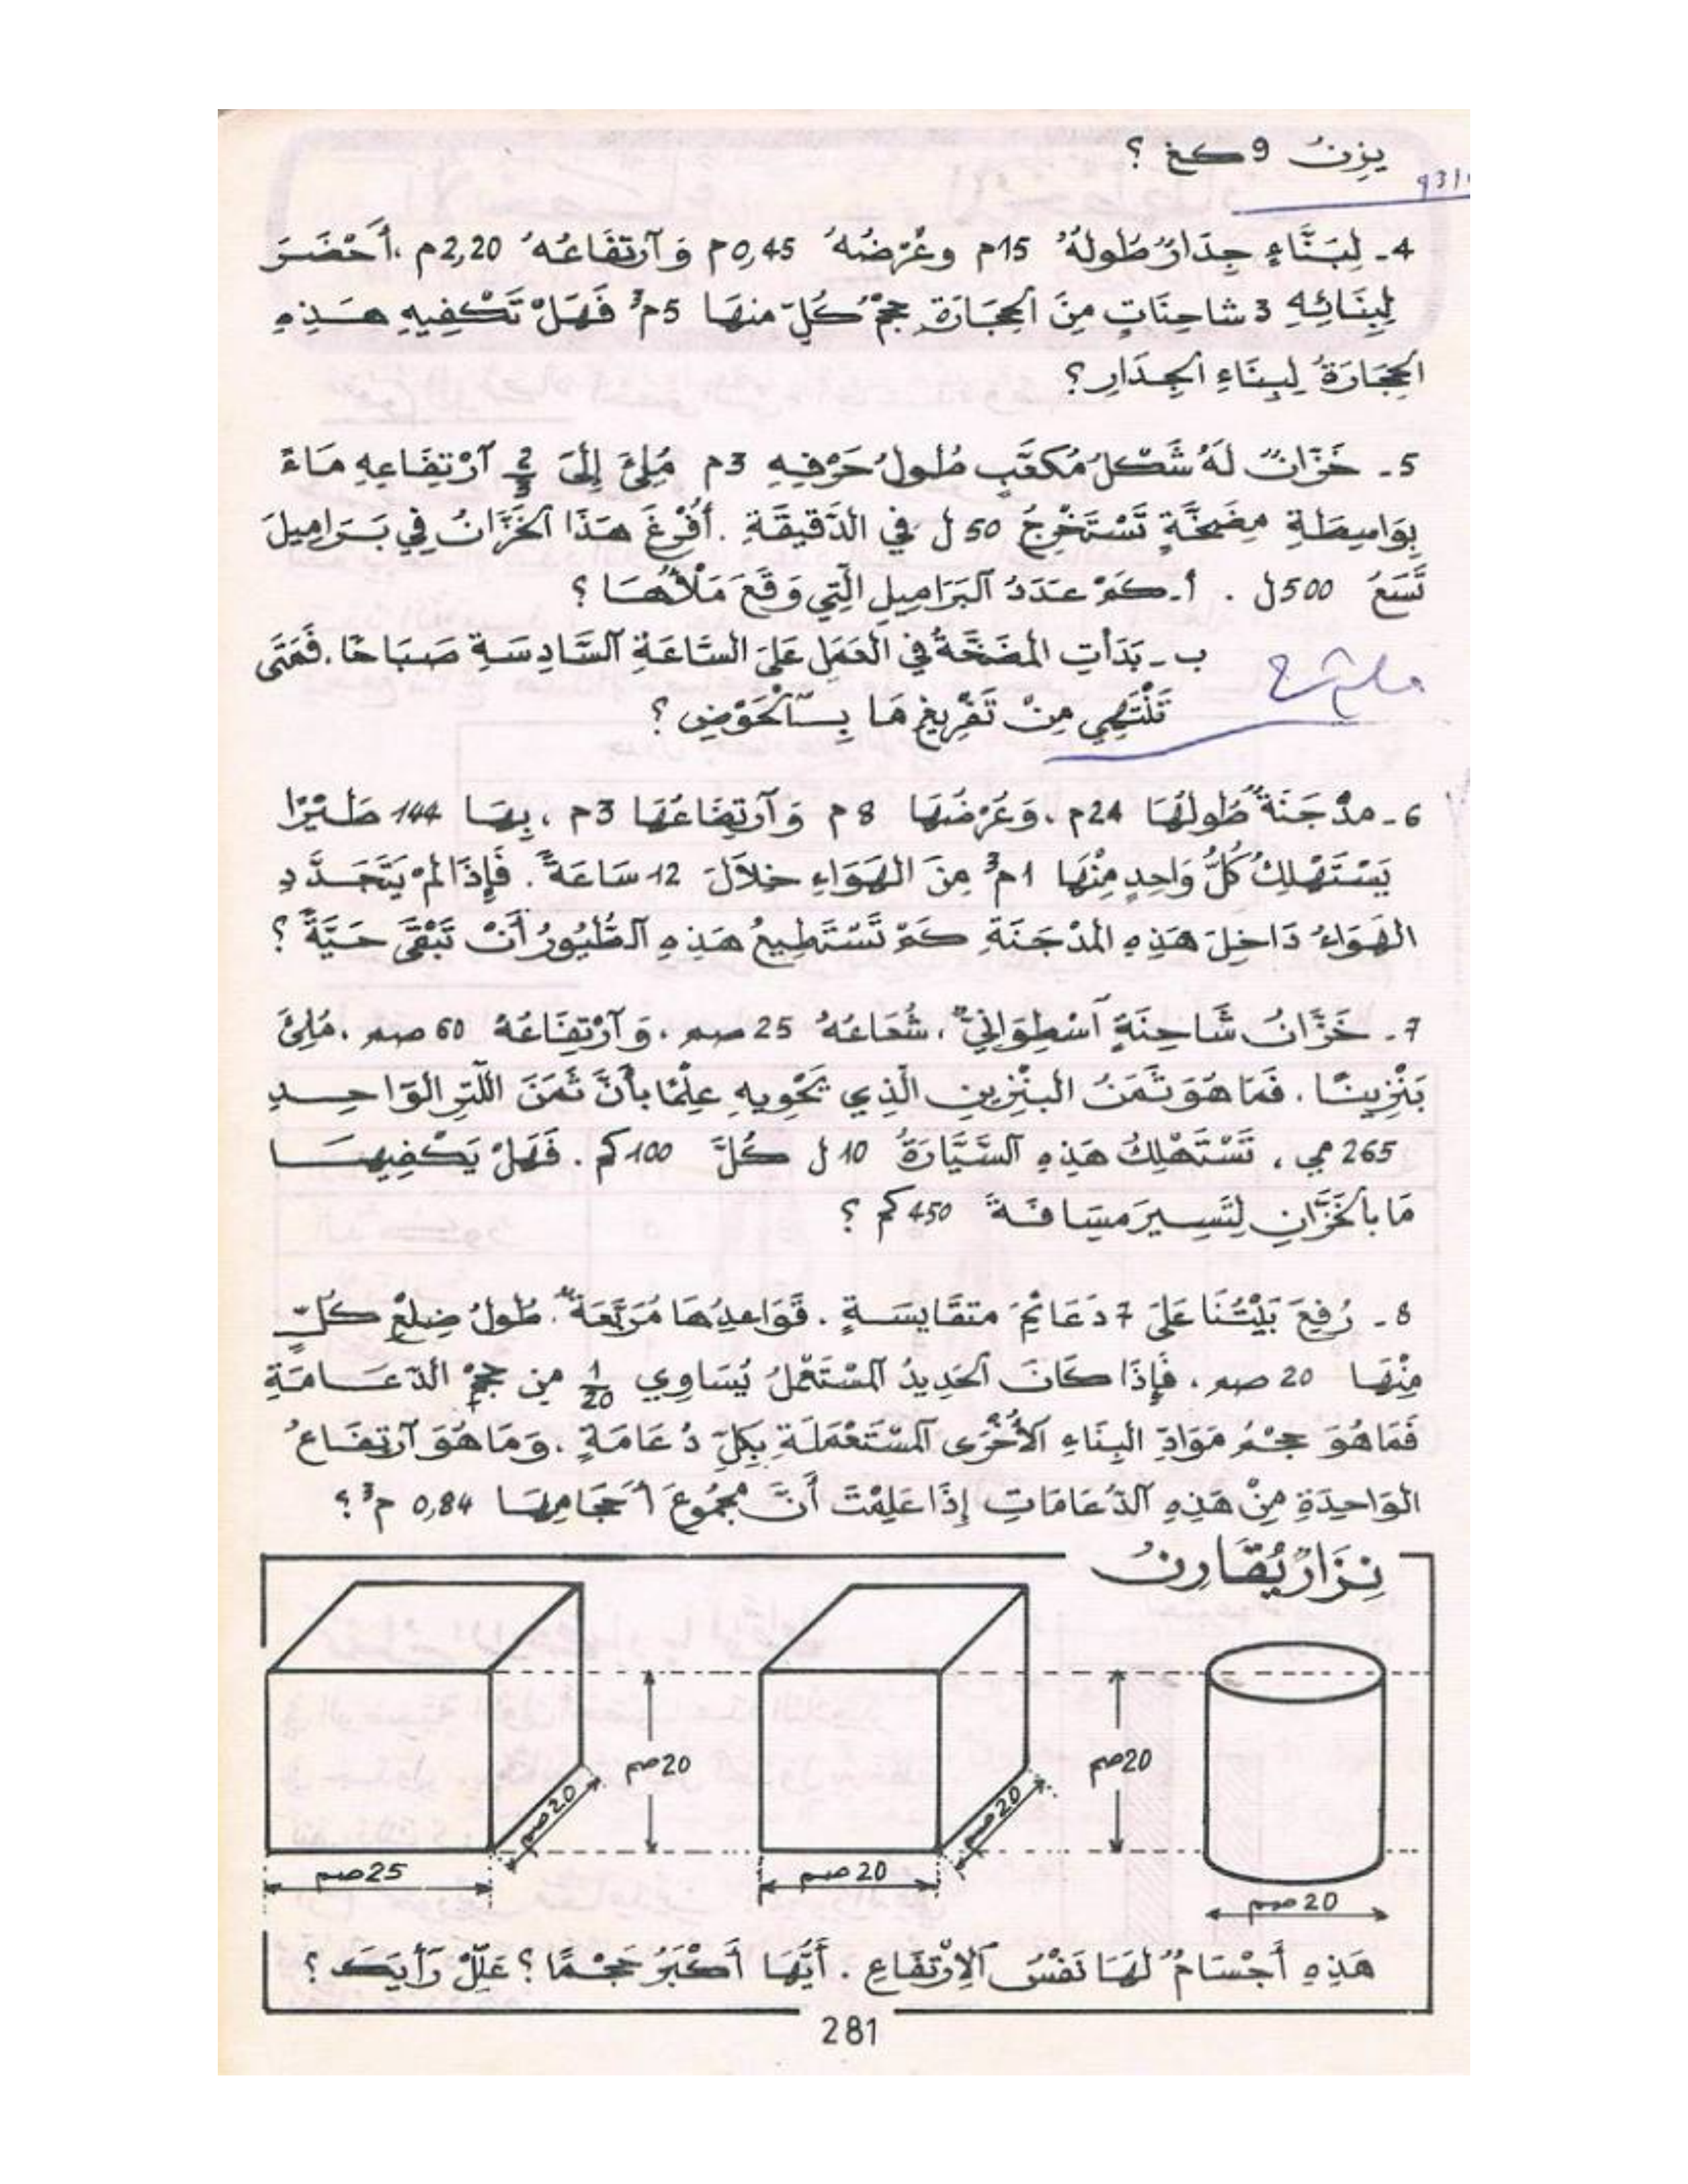 يزن 9 كغ ؟
4 - لِبَنَّاءٍ جِدَارٌ طُولُهُ 15م وعُرْضُهُ 0,45م وَٱرْتِفَاعُهُ 2,20م ، أَحْضَرَ
لِبِنَائِهِ 3 شاحِنَاتٍ مِنَ ٱلحِجَارَةِ حجْمُ كُلّ منهَا 5م³ فَهَلْ تَكْفِيهِ هَذِهِ
ٱلحِجَارَةُ لِبِنَاءِ ٱلجِدَارِ ؟
5 - خَزَّانٌ لَهُ شَكْلُ مُكَعَّبٍ طُولُ حَرْفِهِ 3م مُلِئَ إِلَى 2/3 ٱرْتِفَاعِهِ مَاءً
بِوَاسِطَةِ مِضَخَّةٍ تَسْتَخْرِجُ 50 ل في الدَّقِيقَةِ . أُفْرِغَ هَذَا ٱلخَزَّانُ فِي بَرَامِيلَ
تَسَعُ 500 ل . أ - كَمْ عَدَدُ ٱلبَرَامِيلِ الَّتِي وَقَعَ مَلْأُهَا ؟
ب - بَدَأَتِ المضَخَّةُ في العَمَلِ عَلَى السَّاعَةِ ٱلسَّادِسَةِ صَبَاحًا . فَمَتَى
تَنْتَهِي مِنْ تَفْرِيغِ مَا بِٱلْحَوْضِ ؟
6 - مدْجَنَةٌ طُولُهَا 24م ، وَعُرْضُهَا 8 م وَٱرْتِفَاعُهَا 3م ، بِهَا 144 طَيْرًا
يَسْتَهْلِكُ كُلُّ وَاحِدٍ مِنْهَا 1م³ مِنَ الهَوَاءِ خلاَلَ 12 سَاعَةً . فَإِذَا لَمْ يَتَجَدَّدِ
الهَوَاءُ دَاخِلَ هَذِهِ المدْجَنَةِ كَمْ تَسْتَطِيعُ هَذِهِ ٱلطُّيُورُ أَنْ تَبْقَى حَيَّةً ؟
7 - خَزَّانُ شَاحِنَةٍ أُسْطِوَانِيٌّ ، شُعَاعُهُ 25 صم ، وَٱرْتِفَاعُهُ 60 صم ، مُلِئَ
بَنْزِينًا . فَمَا هُوَ ثَمَنُ البنْزِينِ الَّذِي يَحْوِيهِ عِلْمًا بأَنَّ ثَمَنَ اللّتِرِ الوَاحِدِ
265 مي ، تَسْتَهْلِكُ هَذِهِ ٱلسَّيَّارَةُ 10 ل كُلَّ 100 كم . فَهَلْ يَكْفِيهَا
مَا بٱلخَزَّانِ لِتَسِيرَ مسَافَةَ 450 كم ؟
8 - رُفِعَ بَيْتُنَا عَلَى 7 دَعَائِمَ متقَايسَةٍ . قَوَاعِدُهَا مُرَبَّعَةٌ . طُولُ ضِلْعِ كُلٍّ
مِنْهَا 20 صم ، فَإِذَا كَانَ ٱلحَدِيدُ ٱلمُسْتَعْمَلُ يُسَاوِي 1/20 من حجْمِ الدّعَامَةِ
فَمَا هُوَ حجْمُ مَوَادِّ البِنَاءِ ٱلأُخْرَى ٱلمُسْتَعْمَلَةِ بِكلّ دُعَامَةٍ . وَمَا هُوَ ٱرتِفَاعُ
الوَاحِدَةِ مِنْ هَذِهِ ٱلدُعَامَاتِ إِذَا عَلِمْتَ أَنَّ مجْمُوعَ أحْجَامِهَا 0,84 م³ ؟
نِزَارٌ يُقَارِنُ
20صم
20صم
20صم
20صم
25صم
20صم
20صم
هَذِهِ أَجْسَامٌ لَهَا نَفْسُ ٱلِارْتِفَاعِ . أَيُّهَا أَكْبَرُ حَجْمًا ؟ عَلِّلْ رَأْيَكَ ؟
281